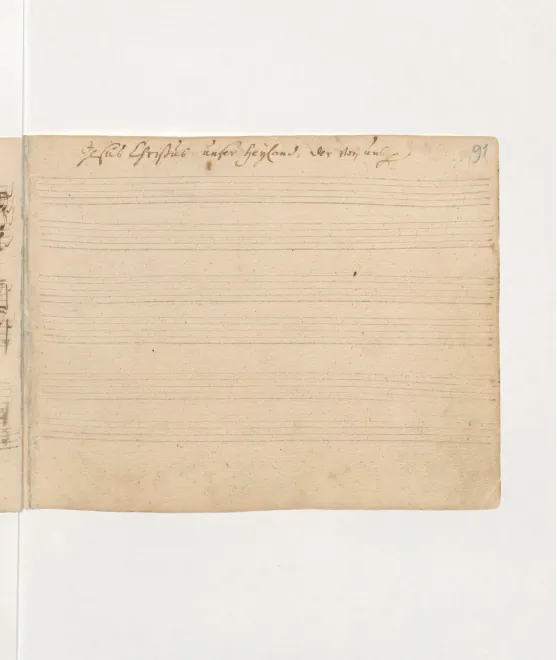 Jesus Christus unser Heyland, der von uns
91